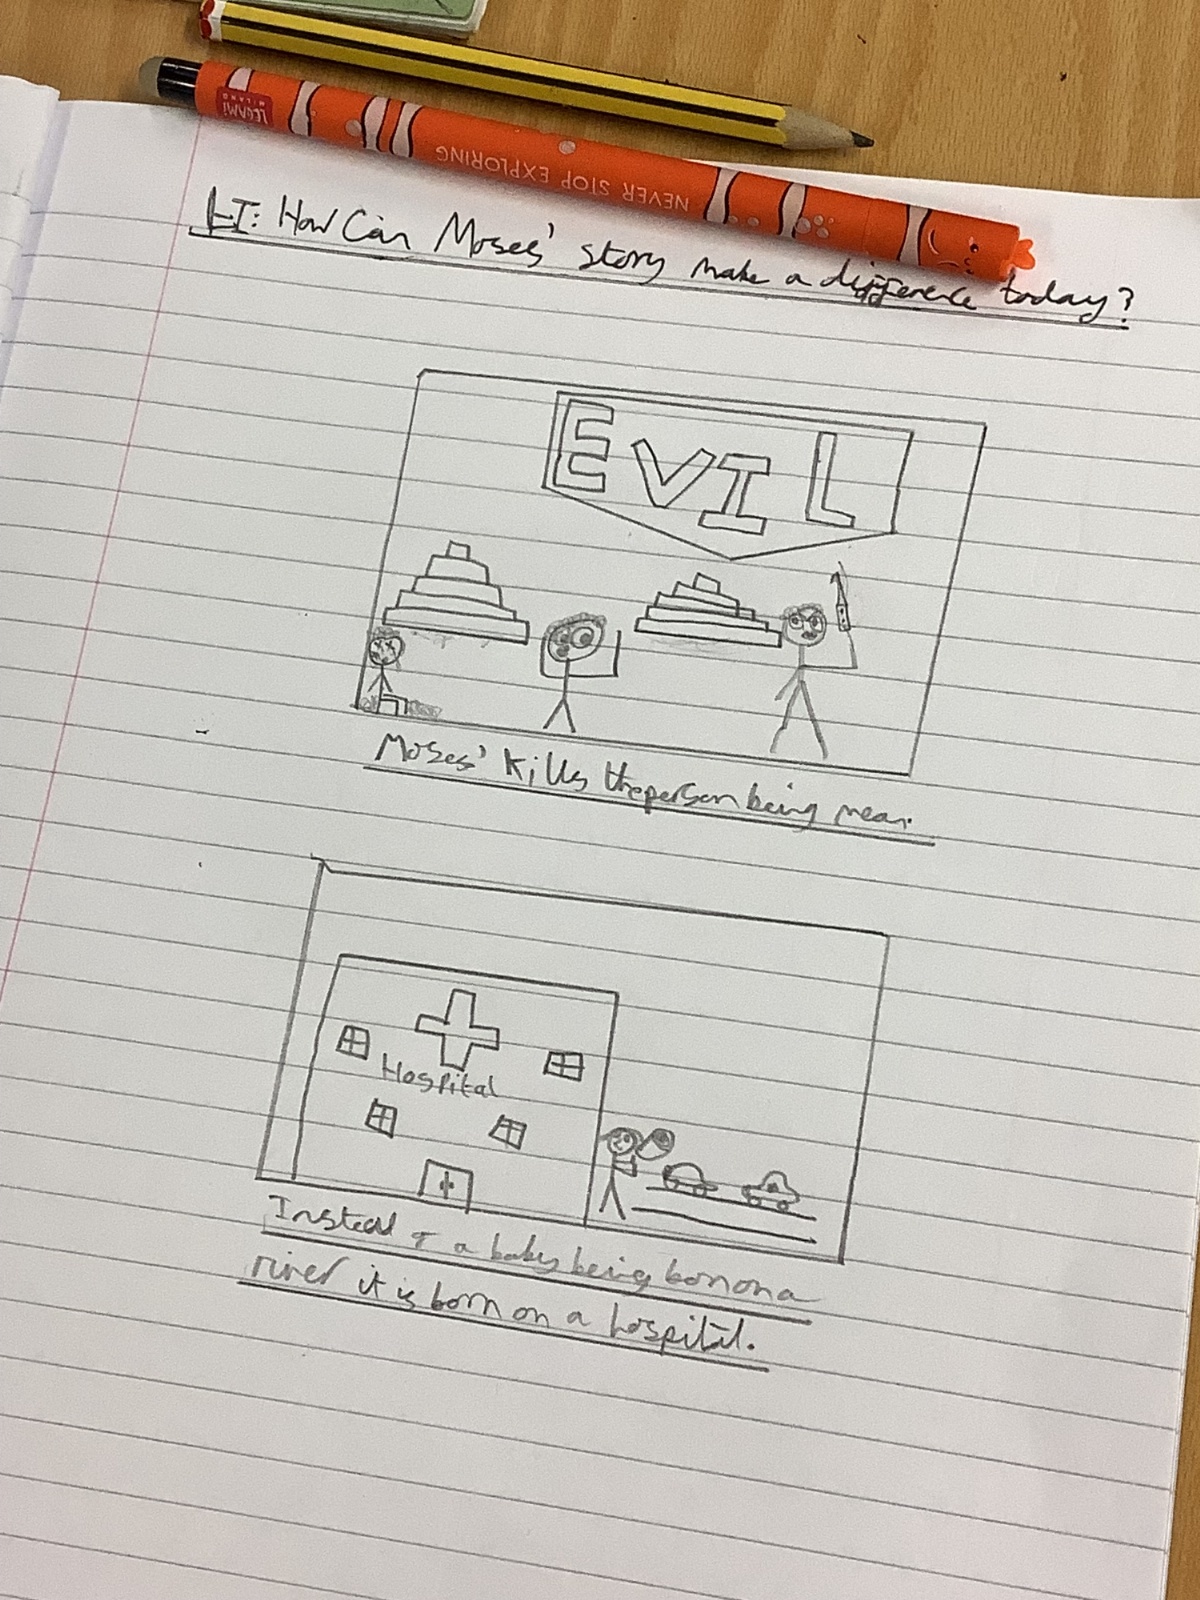 LEGAMI
MILANO
NEVER STOP EXPLORING
LI: How Can Moses' story make a difference today?
EVIL
Moses' kills the person being mean.
Hospital
Instead of a baby being born on a
river it is born on a hospital.